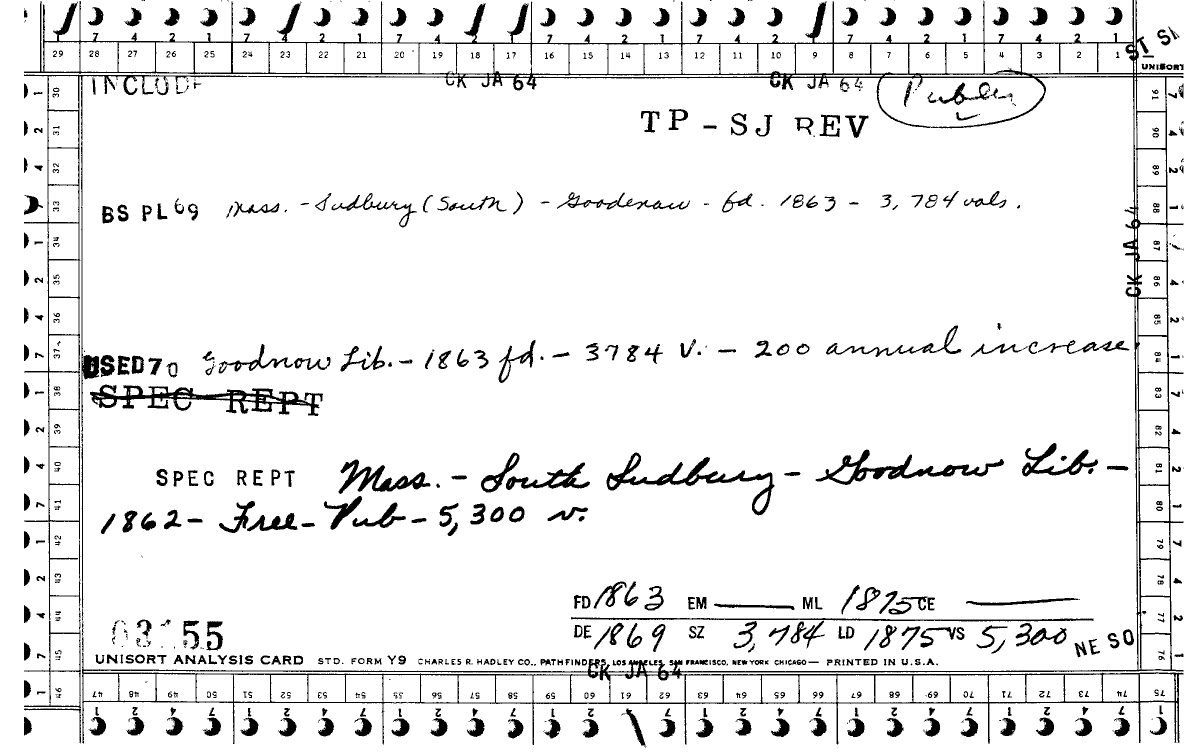 7 4 2 1 7 4 2 1 7 4 2 1 7 4 2 1 7 4 2 1 7 4 2 1 7 4 2 1
29 28 27 26 25 24 23 22 21 20 19 18 17 16 15 14 13 12 11 10 9 8 7 6 5 4 3 2 1
UNISORT
INCLUDE CK JA 64 CK JA 64 Public
TP - SJ REV
BS PL69 Mass. - Sudbury (South) - Goodenow - fd. 1863 - 3,784 vols.
CK JA 64
USED70 Goodnow Lib. - 1863 fd. - 3784 V. - 200 annual increase
SPEC REPT
SPEC REPT Mass. - South Sudbury - Goodnow Lib. -
1862 - Free - Pub - 5,300 v.
FD 1863 EM — ML 1875 CE —
DE 1869 SZ 3,784 LD 1875 VS 5,300 NE SO
UNISORT ANALYSIS CARD STD. FORM Y9 CHARLES R. HADLEY CO., PATHFINDERS, LOS ANGELES, SAN FRANCISCO, NEW YORK CHICAGO — PRINTED IN U.S.A.
CK JA 64
30 31 32 33 34 35 36 37 38 39 40 41 42 43 44 45 46
91 90 89 88 87 86 85 84 83 82 81 80 79 78 77 76
47 48 49 50 51 52 53 54 55 56 57 58 59 60 61 62 63 64 65 66 67 68 69 70 71 72 73 74 75